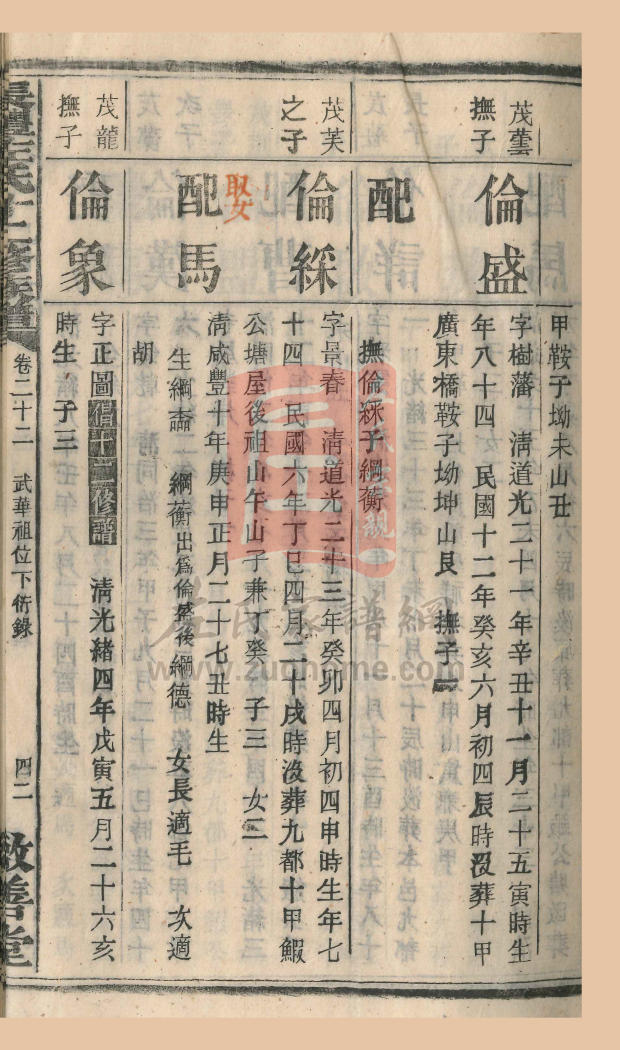 甲鞍子坳未山丑
茂蕓
撫子
倫盛
字樹藩　清道光二十一年辛丑十一月二十五寅時生
年八十四　民國十二年癸亥六月初四辰時沒葬十甲
廣東橋鞍子坳坤山艮　撫子一
配
撫倫綵子綱蘅
茂芙
之子
倫綵
字景春　清道光二十三年癸卯四月初四申時生年七
十四　民國六年丁巳四月二十戌時沒葬九都十甲鰕
公塘屋後祖山午山子兼丁癸　子三　女二
取女
配馬
清咸豐十年庚申正月二十七丑時生
生綱裔　綱蘅出爲倫盛後綱德　女長適毛　次適
胡
茂龍
撫子
倫象
字正圖　清光緒四年戊寅五月二十六亥
時生　子三
左氏十二修族譜
卷二十二　武華祖位下衍錄　四二
敦善堂
左氏家譜網
www.zuohome.com